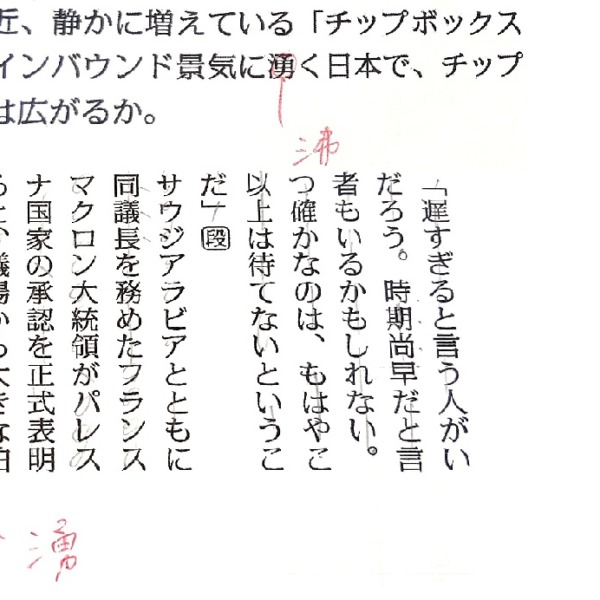 近、静かに増えている「チップボックス
インバウンド景気に湧く日本で、チップ
は広がるか。
沸
「遅すぎると言う人がい
だろう。時期尚早だと言
者もいるかもしれない。
つ確かなのは、もはやこ
以上は待てないというこ
だ」段
サウジアラビアとともに
同議長を務めたフランス
マクロン大統領がパレス
ナ国家の承認を正式表明
湧